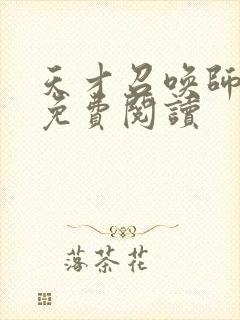 天才召喚師
免費閱讀
落茶花